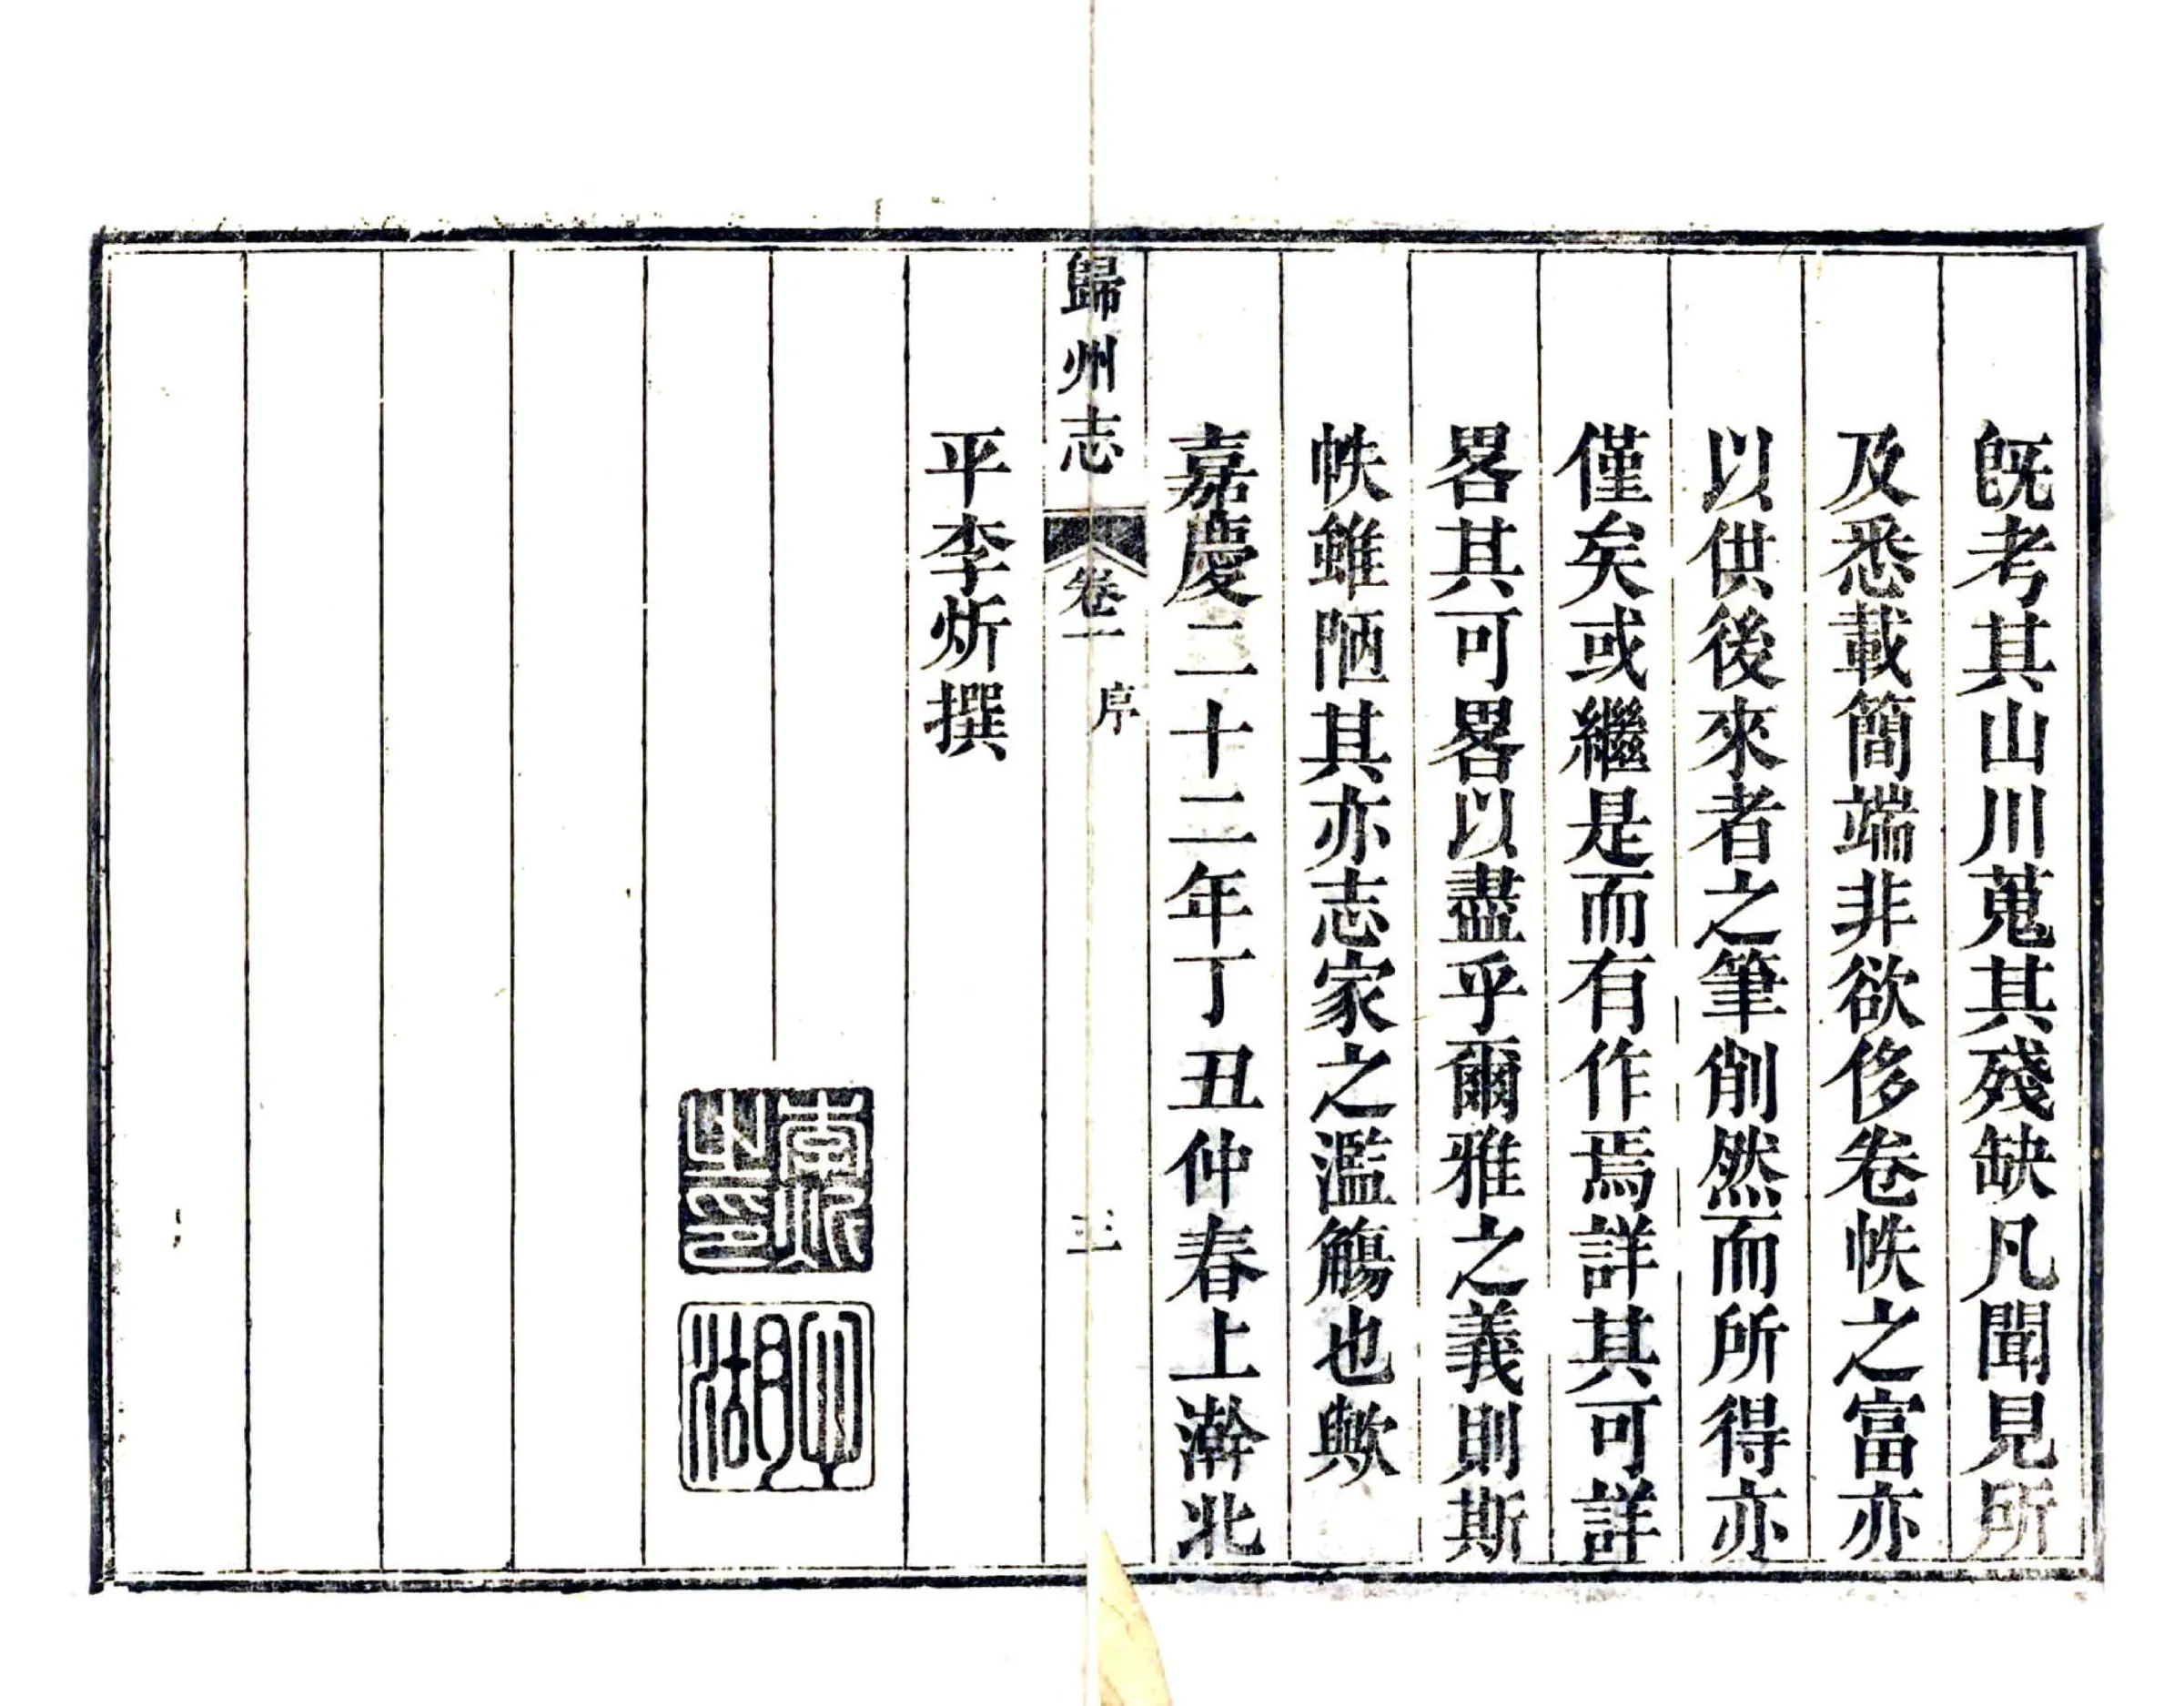 既考其山川蒐其殘缺凡聞見所
及悉載簡端非欲侈卷帙之富亦
以供後來者之筆削然而所得亦
僅矣或繼是而有作焉詳其可詳
畧其可畧以盡乎爾雅之義則斯
帙雖陋其亦志家之濫觴也歟
嘉慶二十二年丁丑仲春上澣北
歸州志
卷一
序
三
平李炘撰